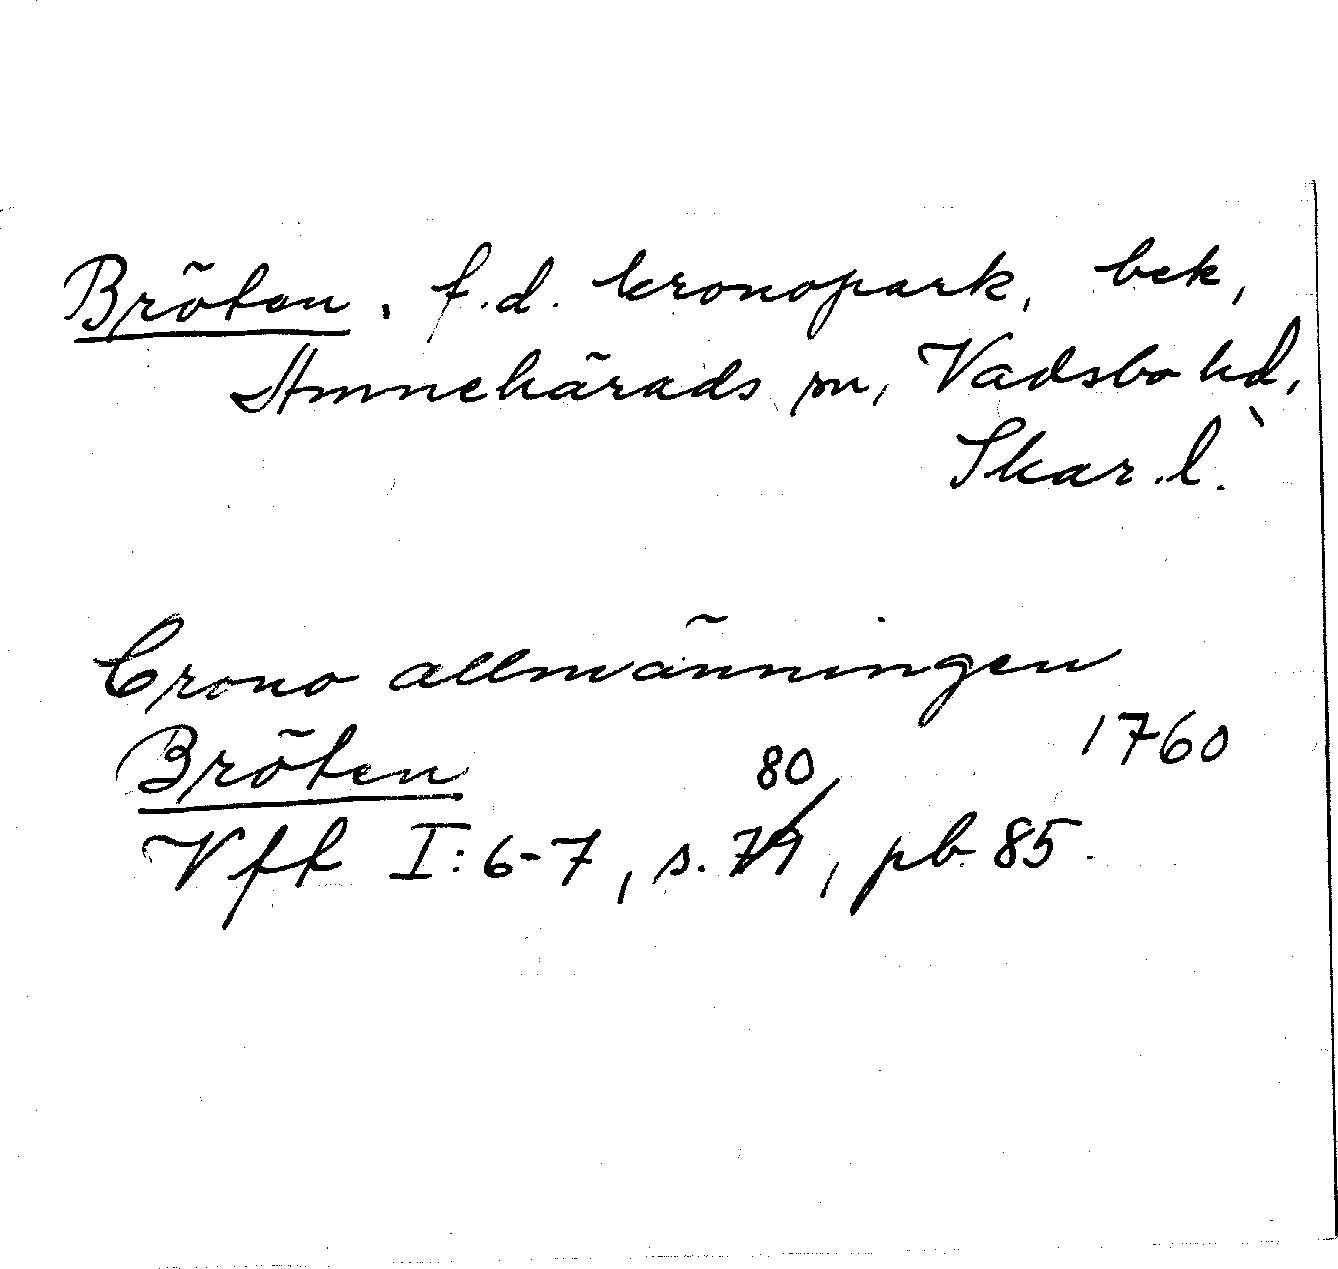 Bröten, f.d. kronopark, bek,
Amnehärads sn, Vadsbo hd,
Skar. l.
Crono allmänningen
Bröten 1760
80
Vfk I:6-7, s. 79, pb 85